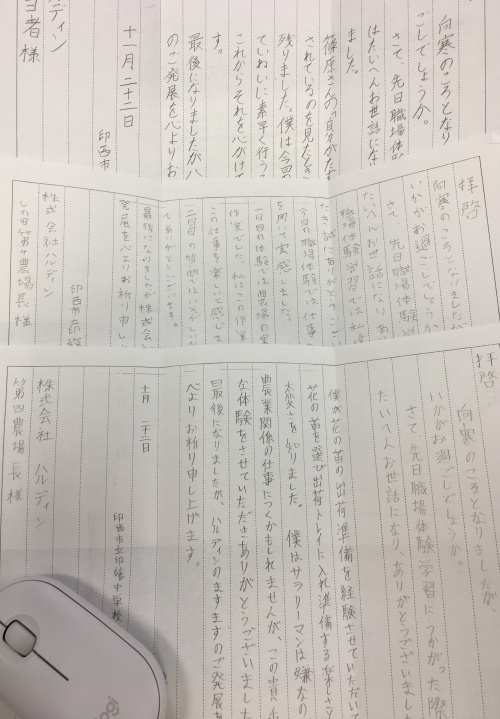 向寒のころとなり
ごしでしょうか。
さて、先日職場体
はたいへんお世話にな
ました。
篠原さんの「自分が
されているのを見たとき
残りました。僕は今回の
ていねいに素早く行う
これからそれを心がけて
す。
最後になりましたがハ
のご発展を心よりお
十一月 二十二日
印西市
ディン
当者様
拝啓
向寒のころとなりましたが
いかがお過ごしでしょうか
さて、先日職場体験
たいへんお世話になり、あり
職場体験学習では私
ただき誠にありがとうござい
今回の職場体験では仕事
を用いて実感しました。
一日目の体験では農場の
作業でした。私はこの作業
この仕事を楽しいと感じま
二日目の質問では
てありがとうございます。
最後になりましたが株式会
発展を心よりお祈り申し
印西市
株式会社ハルディン
農場長様
拝啓
向寒のころとなりましたが
いかがお過ごしでしょうか。
さて、先日職場体験学習にうかがった際
たいへんお世話になり、ありがとうございまし
僕が花の苗の出荷準備を経験させていただいて
花の苗を選び出荷トレイに入れ準備する楽しさ
大変さを知りました。僕はサラリーマンは嫌なの
農業関係の仕事につくかもしれませんが、この貴重
な体験をさせていただきありがとうございました
最後になりましたが、ハルディンのますますのご発展を
心よりお祈り申し上げます。
十一月 二十二日
印西市立印旛中学校
株式会社 ハルディン
第四農場長様
logi